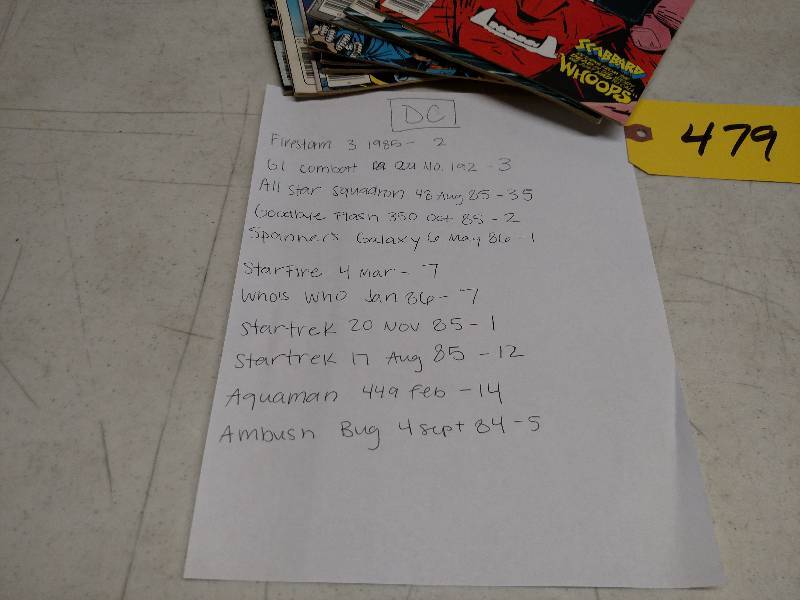 SCABBARD
WHOOPS
479
DC
Firestorm 3 1985 - 2
GI combatt No. 192 - 3
All star squadron 48 Aug 85 - 35
Goodbye Flash 350 Oct 85 - 2
Spanner's Galaxy 6 May 86 - 1
Starfire 4 Mar - 7
Whois Who Jan 86 - 7
Startrek 20 Nov 85 - 1
Startrek 17 Aug 85 - 12
Aquaman 449 Feb - 14
Ambush Bug 4 sept 84 - 5